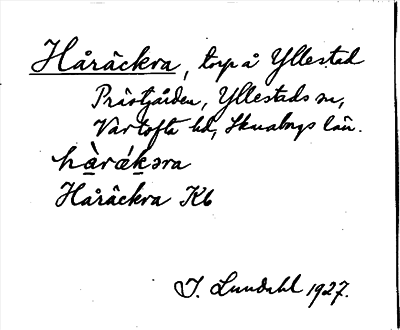 Håräckra, torp å Yllestad
Prästgården, Yllestads sn,
Vartofta hd, Skaabrgs län.
hàrǽkəra
Håräckra Kb
I. Lundahl 1927.